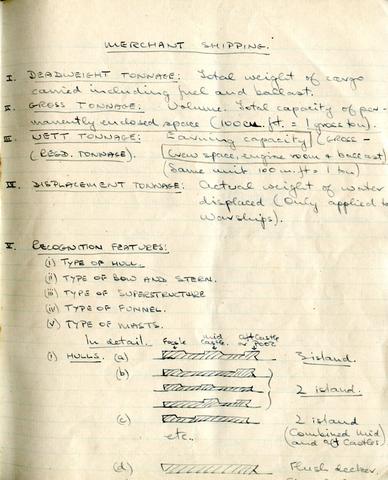 MERCHANT SHIPPING.
I. DEADWEIGHT TONNAGE: Total weight of cargo
carried including fuel and ballast.
II. GROSS TONNAGE: Volume. Total capacity of per-
manently enclosed space (100 cu. ft. = 1 gross ton).
III. NETT TONNAGE: Earning capacity (GROSS -
(REGD. TONNAGE). Crew space, engine room & ballast)
(Same unit 100 cu. ft = 1 ton)
IV. DISPLACEMENT TONNAGE: Actual weight of water
displaced (Only applied to
Warships).
V. RECOGNITION FEATURES:
(i) TYPE OF HULL.
(ii) TYPE OF BOW AND STERN.
(iii) TYPE OF SUPERSTRUCTURE
(iv) TYPE OF FUNNEL.
(v) TYPE OF MASTS.
In detail. Focsle mid castle. aft castle or POOP
(i) HULLS. (a) 3 island.
(b)
2 island.
(c) 2 island
etc.. (Combined mid
and aft castles)
(d) Flush decker.